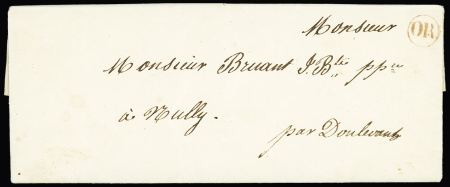 Monsieur
OR
Monsieur Bruant J. Bte ppre
à Nully.
par Doulevant